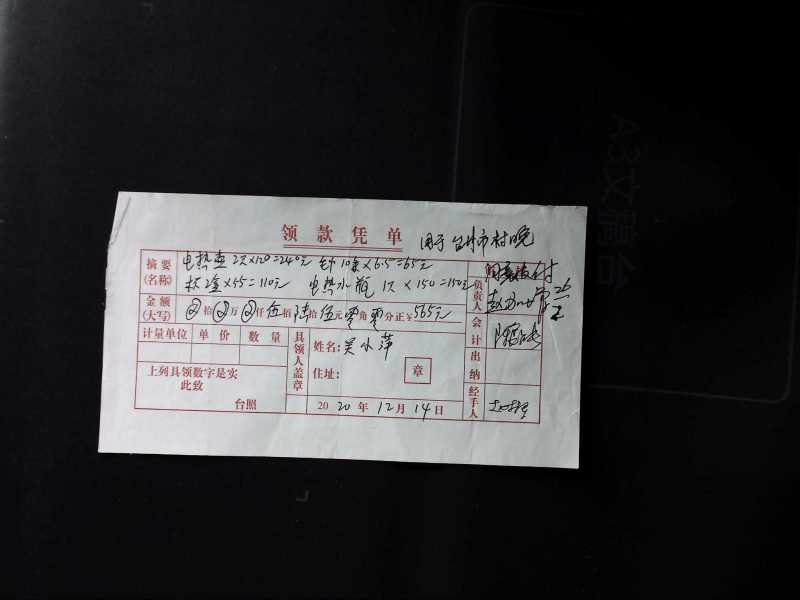 领款凭单 用于台州市村晚
摘要 电热壶2只×120=240元 10条×6.5=65元
(名称) 2盒×55=110元 电热水瓶1只×150=150元
金额
(大写) 拾 万 仟伍佰陆拾伍元零角零分正¥565元
计量单位 单价 数量
上列具领数字是实
此致
台照
具领人盖章
姓名:吴小萍
住址: 章
2020年12月14日
负责人
会计
出纳
经手人
A3文稿台